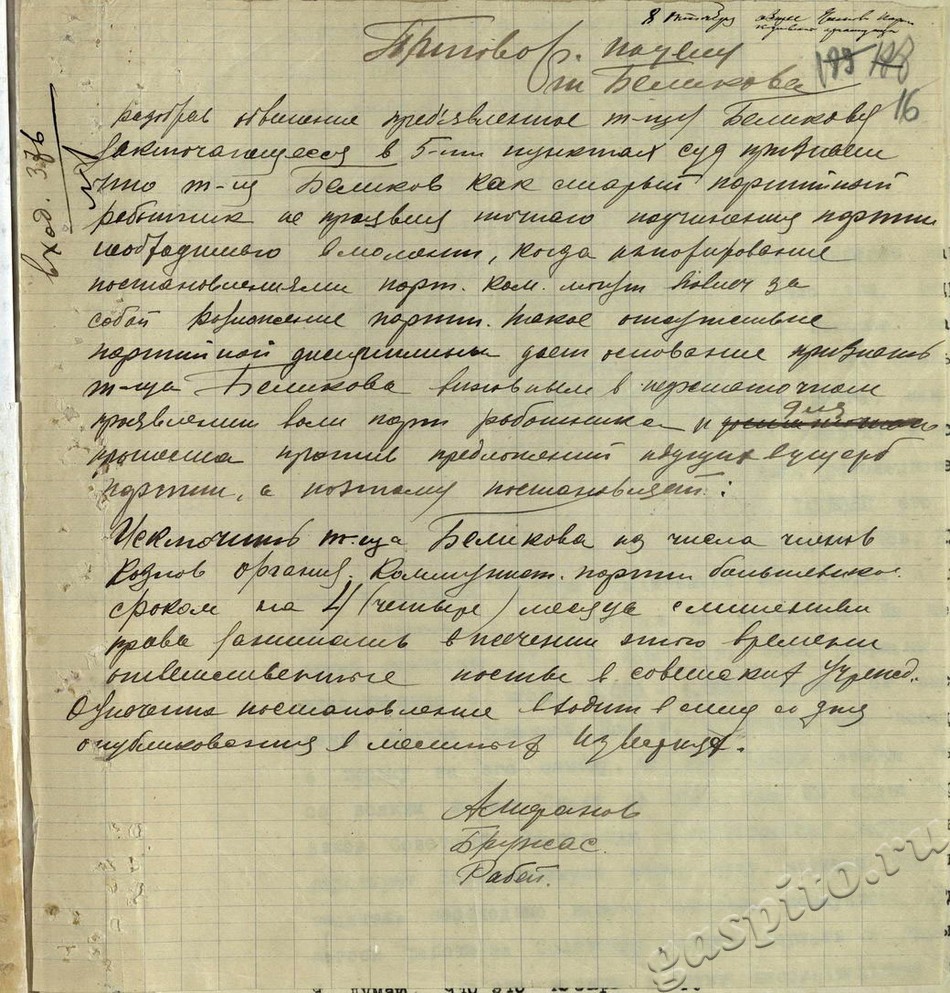 8 октября общее
Приговор. по делу
т Беликова
185 188
16
вход. 376
разобрав обвинение предъявленное т-щу Беликову
заключающееся в 5-ти пунктах суд признает
что т-щ Беликов как старый партийный
работник не проявил точного подчинения партии
необходимого в момент, когда игнорирование
постановлениями парт. ком. могут повлеч за
собой разложение партии. такое отсутствие
партийной дисциплины дает основание признать
т-ща Беликова виновным в недостаточном
проявлении воли парт работника и для
протеста против предложений идущих в ущерб
партии, а поэтому постановляет:
Исключить т-ща Беликова из числа членов
Козлов организ. Коммунист. партии большевиков
сроком на 4 (четыре) месяца с лишением
права занимать в течении этого времени
ответственные посты в советских учрежд.
Означен. постановление входит в силу со дня
опубликования в местных Известиях.
Бружас.
Рабей.
gaspito.ru